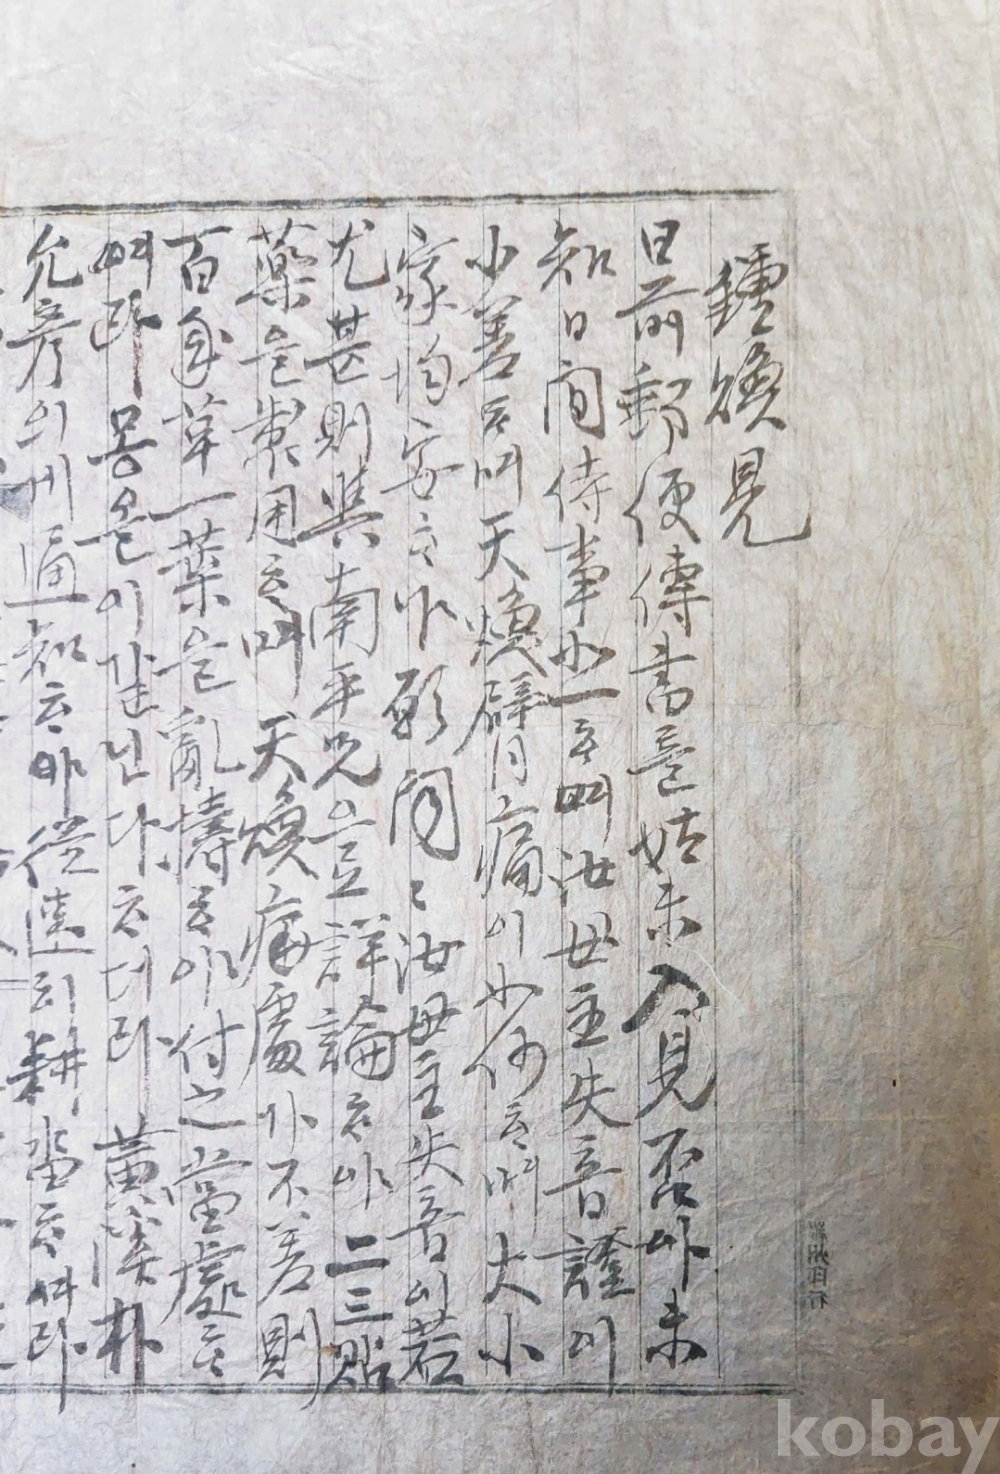 鍾煥見
日前郵便傳書는姑未入見否아未
知日間侍事如一하며汝母主失音證이
小差하며天煥臂痛이如何하며大小
家均安하야願聞々汝母主失音이若
尤甚則與南平兄으로詳論하야二三貼
藥을製用하며天煥痛處가不差則
百自草一葉을亂擣하야付之當處하
여라몸을이갈난다하더라黃溪朴
允彦의게通知하야從速히耕畓하여라
kobay